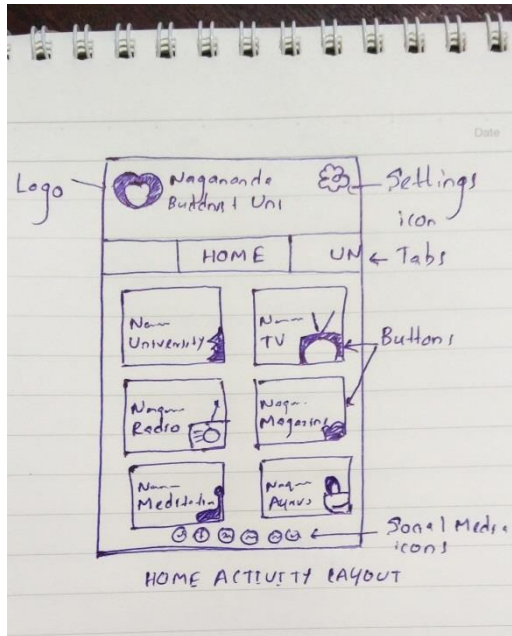 Date
Logo
Nagananda
Buddhist Uni
Settings
icon
HOME
UN
Tabs
University
TV
Buttons
Radio
Magazine
Meditation
Social Media
icons
HOME ACTIVITY LAYOUT